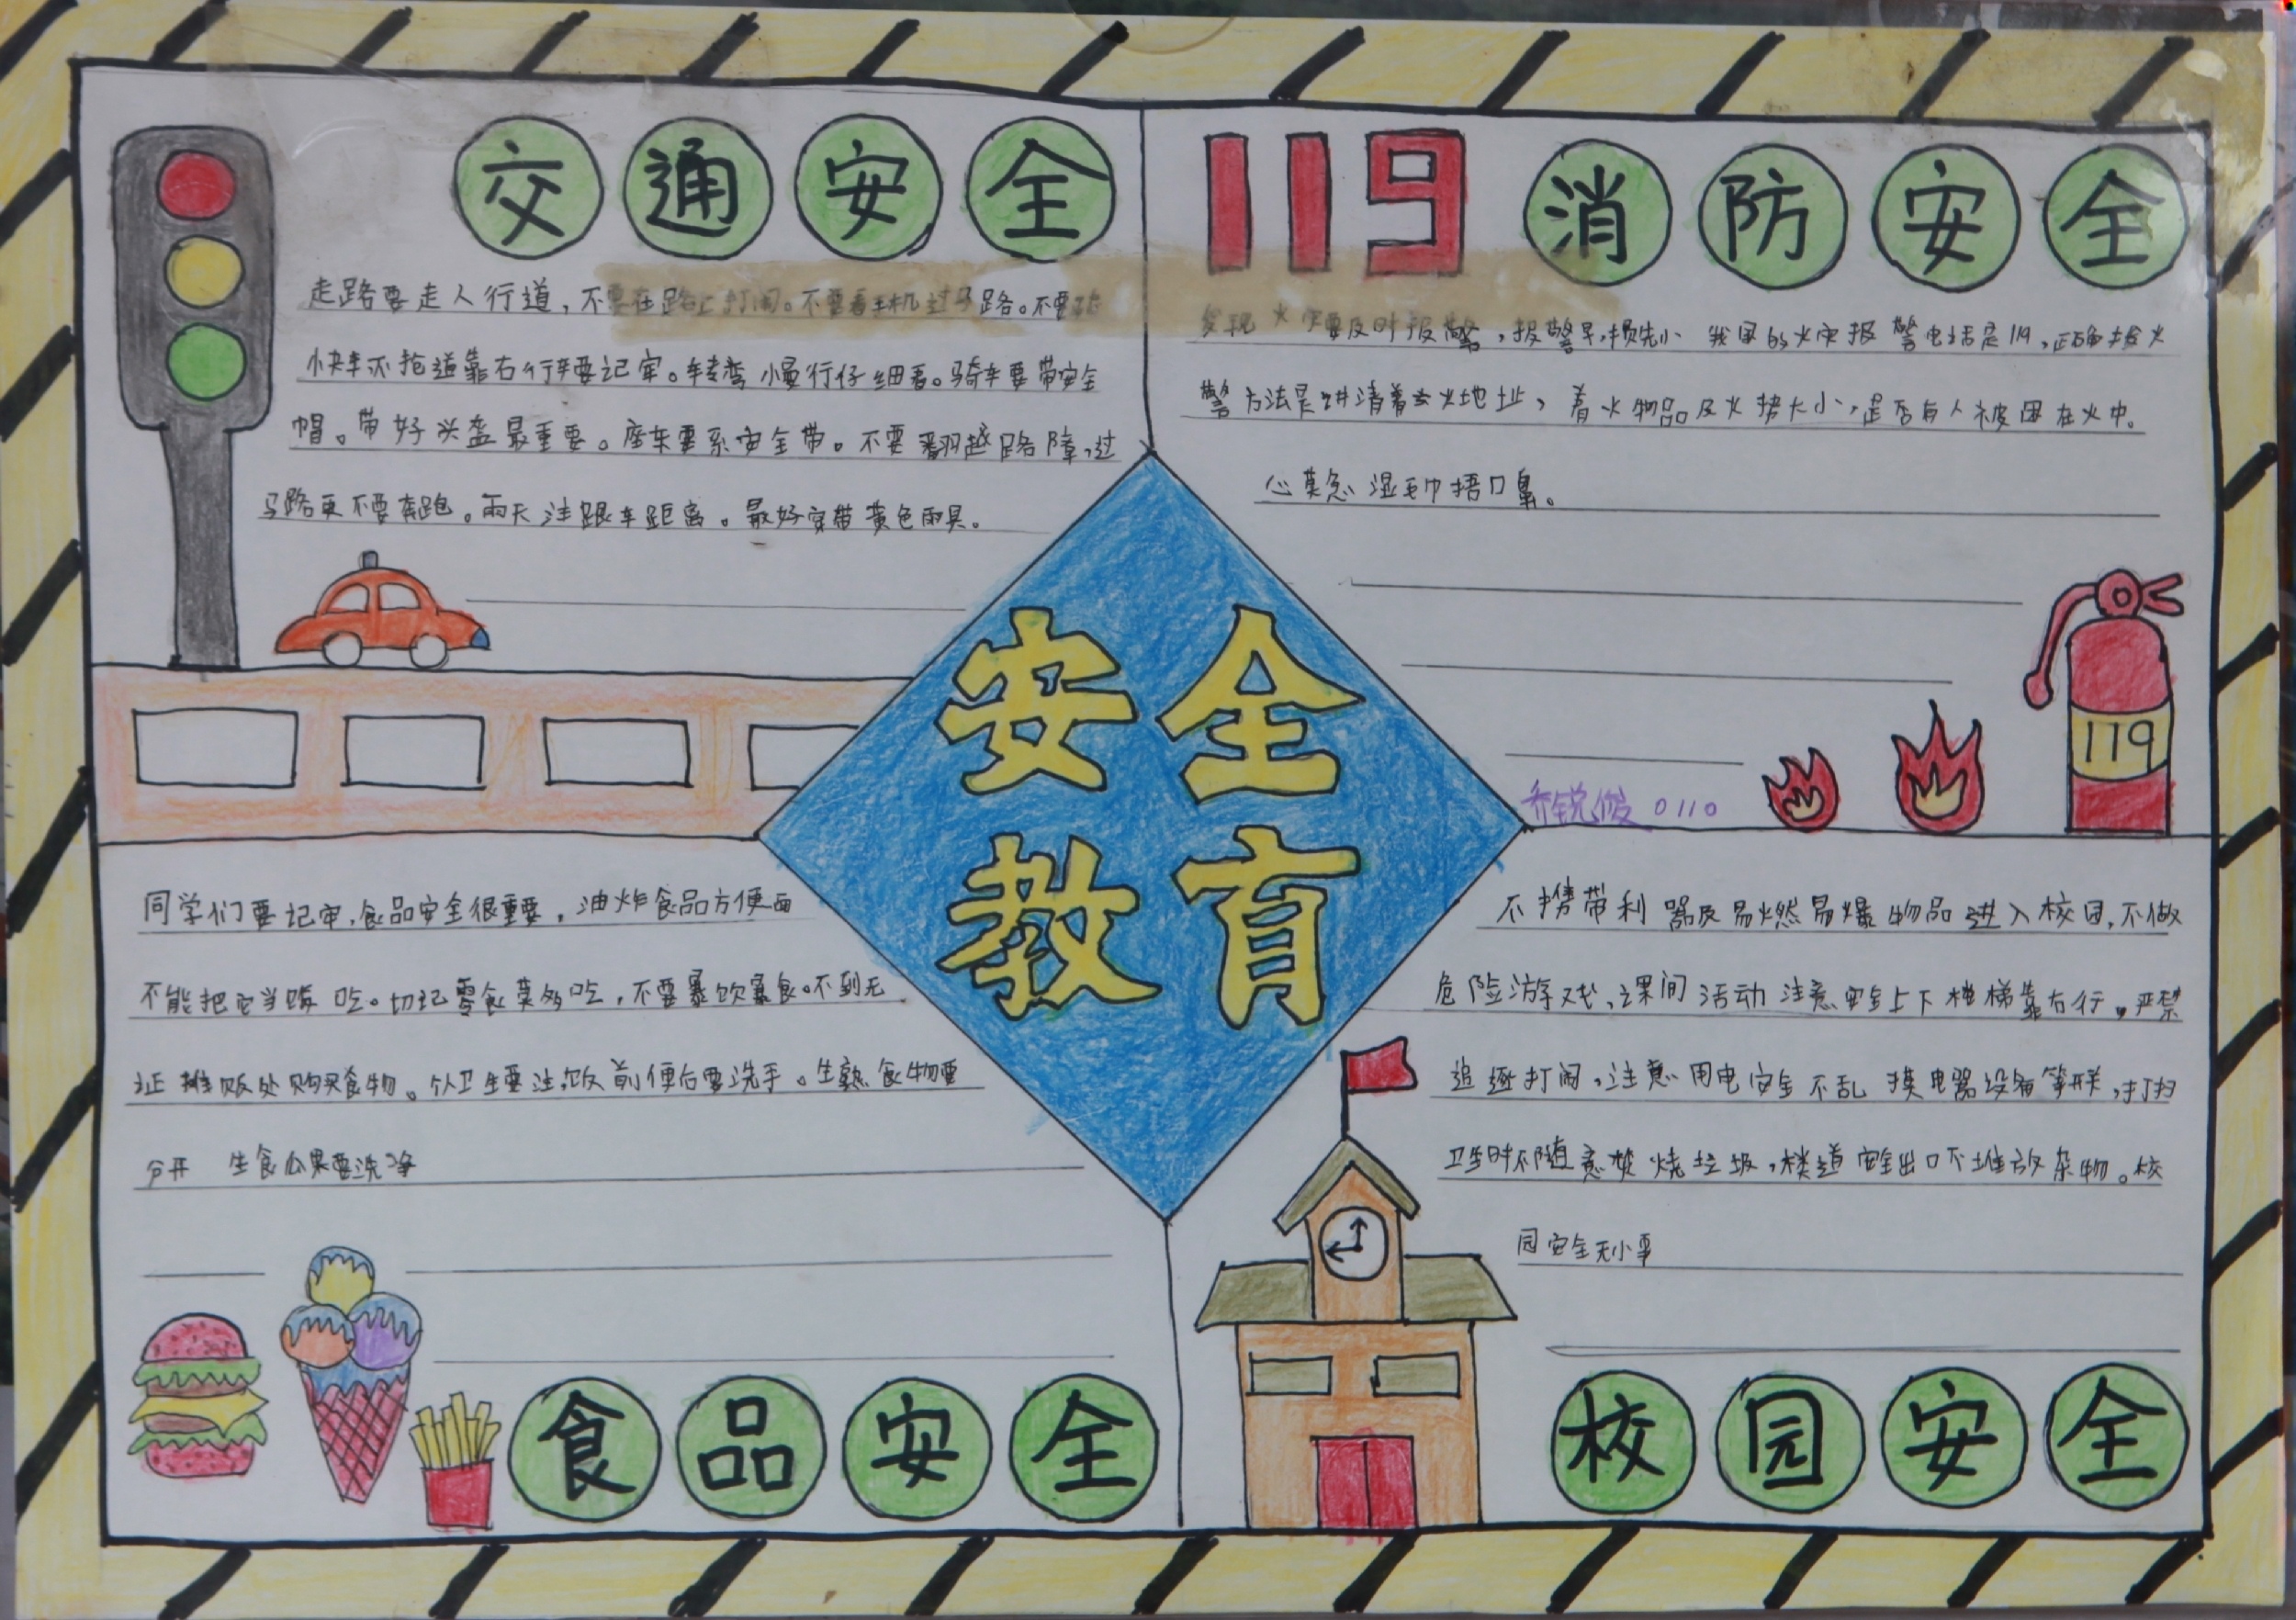 交通安全
走路要走人行道，不要在路上打闹。不要看手机过马路。不要
快车不抢道靠右行车要记牢。转弯小慢行仔细看。骑车要带安全
帽。带好头盔最重要。座车要系安全带。不要翻越路障，过
马路更不要奔跑。雨天注跟车距离。最好穿带黄色雨具。
119 消防安全
发现火灾要及时报警，报警早，损失小 我国的火灾报警电话是119，正确报火
警方法是讲清着火地址，着火物品及火势大小，是否有人被困在火中。
心莫急 湿毛巾捂口鼻。
119
乔锐俊 0110
安全
教育
同学们要记牢，食品安全很重要，油炸食品方便面
不能把它当 吃。切记零食莫多吃，不要暴饮暴食。不到无
证摊贩处购买食物。个卫生要注，饭前便后要洗手。生熟食物要
分开 生食瓜果要洗净
食品安全
不携带利器及易燃易爆物品进入校园，不做
危险游戏，课间活动注意安全上下楼梯靠右行。严禁
追逐打闹，注意用电安全不乱摸电器设备等开关，打扫
卫生时不随意焚烧垃圾，楼道安全出口不堆放杂物。校
园安全无小事
校园安全